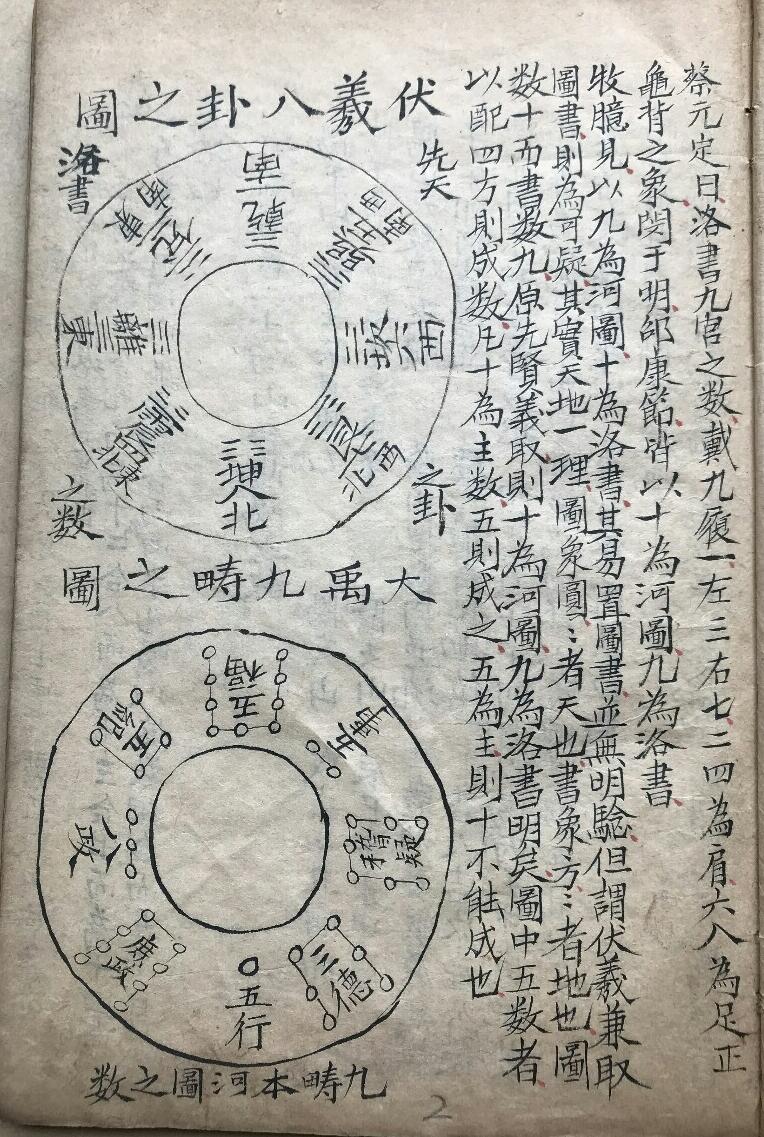 蔡元定曰洛書九宮之数戴九履一左三右七二四為肩六八為足正
龜背之象関于明邵康節皆以十為河圖九為洛書
牧臆見以九為河圖十為洛書其易置圖書並無明騐但謂伏羲兼取
圖書則為可疑其實天地一理圖象圓〻者天也書象方〻者地也圖
数十而書数九原先賢義取則十為河圖九為洛書明矣圖中五数者
以配四方則成数凡十為主数五則成之五為主則十不能成也
伏羲八卦之圖
先天
之卦
洛書
之数
南
乾
西南
巽
西
坎
西北
艮
北
坤
東北
震
東
離
東南
兌
大禹九畴之圖
五福
五事
稽疑
三德
五行
庶政
八政
五紀
九畴本河圖之数
2